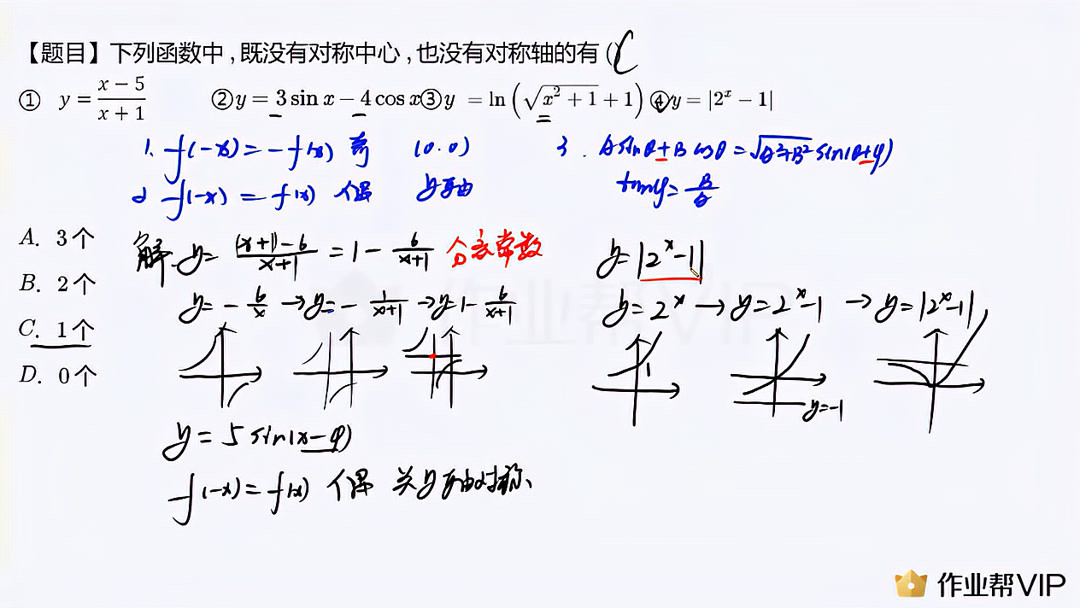 【题目】下列函数中,既没有对称中心,也没有对称轴的有()C
① y=\frac{x-5}{x+1} ②y=3sinx-4cosx③y =ln(\sqrt{x^2+1}+1)④y=|2^x-1|
1. f(-x)=-f(x) 奇 (0.0) 3. Asinθ+Bcosθ=\sqrt{A^2+B^2}sin(θ+φ)
2 f(-x)=f(x) 偶 y轴 tanφ=\frac{B}{A}
A. 3个
B. 2个
C. 1个
D. 0个
解. y=\frac{(x+1)-6}{x+1}=1-\frac{6}{x+1} 分离常数 y=|2^x-1|
y=-\frac{6}{x}→y=-\frac{1}{x+1}→y1-\frac{6}{x+1} y=2^x→y=2^x-1→y=|2^x-1|
1 y=-1
y=5sin(x-φ)
f(-x)=f(x) 偶 关y轴对称
作业帮VIP
作业帮VIP